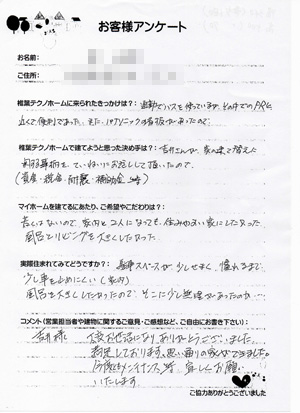 お客様アンケート
お名前:
ご住所:
椎葉テクノホームに来られたきっかけは？: 通勤でバスを使っていますが、
近くて便利であった。また、パナソニックの看板があったので
椎葉テクノホームで建てようと思った決め手は？: 吉井さんが、家の建て替えに
ていねいにお話しして頂いたので
(資金・税金・耐震・補助金 等)
マイホームを建てるにあたり、ご希望やこだわりは？:
若くはないので、家内と2人になっても、住みやすい家にしたかった
風呂とリビングを大きくしたかった。
実際住まれてみてどうですか？: 駐車スペースが少しせまく、慣れるまで
少し車を止めにくい(家内)
風呂を大きくしたかったので、そこに少し無理があったのか…
コメント(営業担当者や建物に関するご意見・ご感想など、ご自由にお書き下さい):
吉井様 大変お世話になり、ありがとうございました。
満足しております。思い通りの家ができました。
今後もメンテナンス等、宜しくお願い
いたします
ご協力ありがとうございました